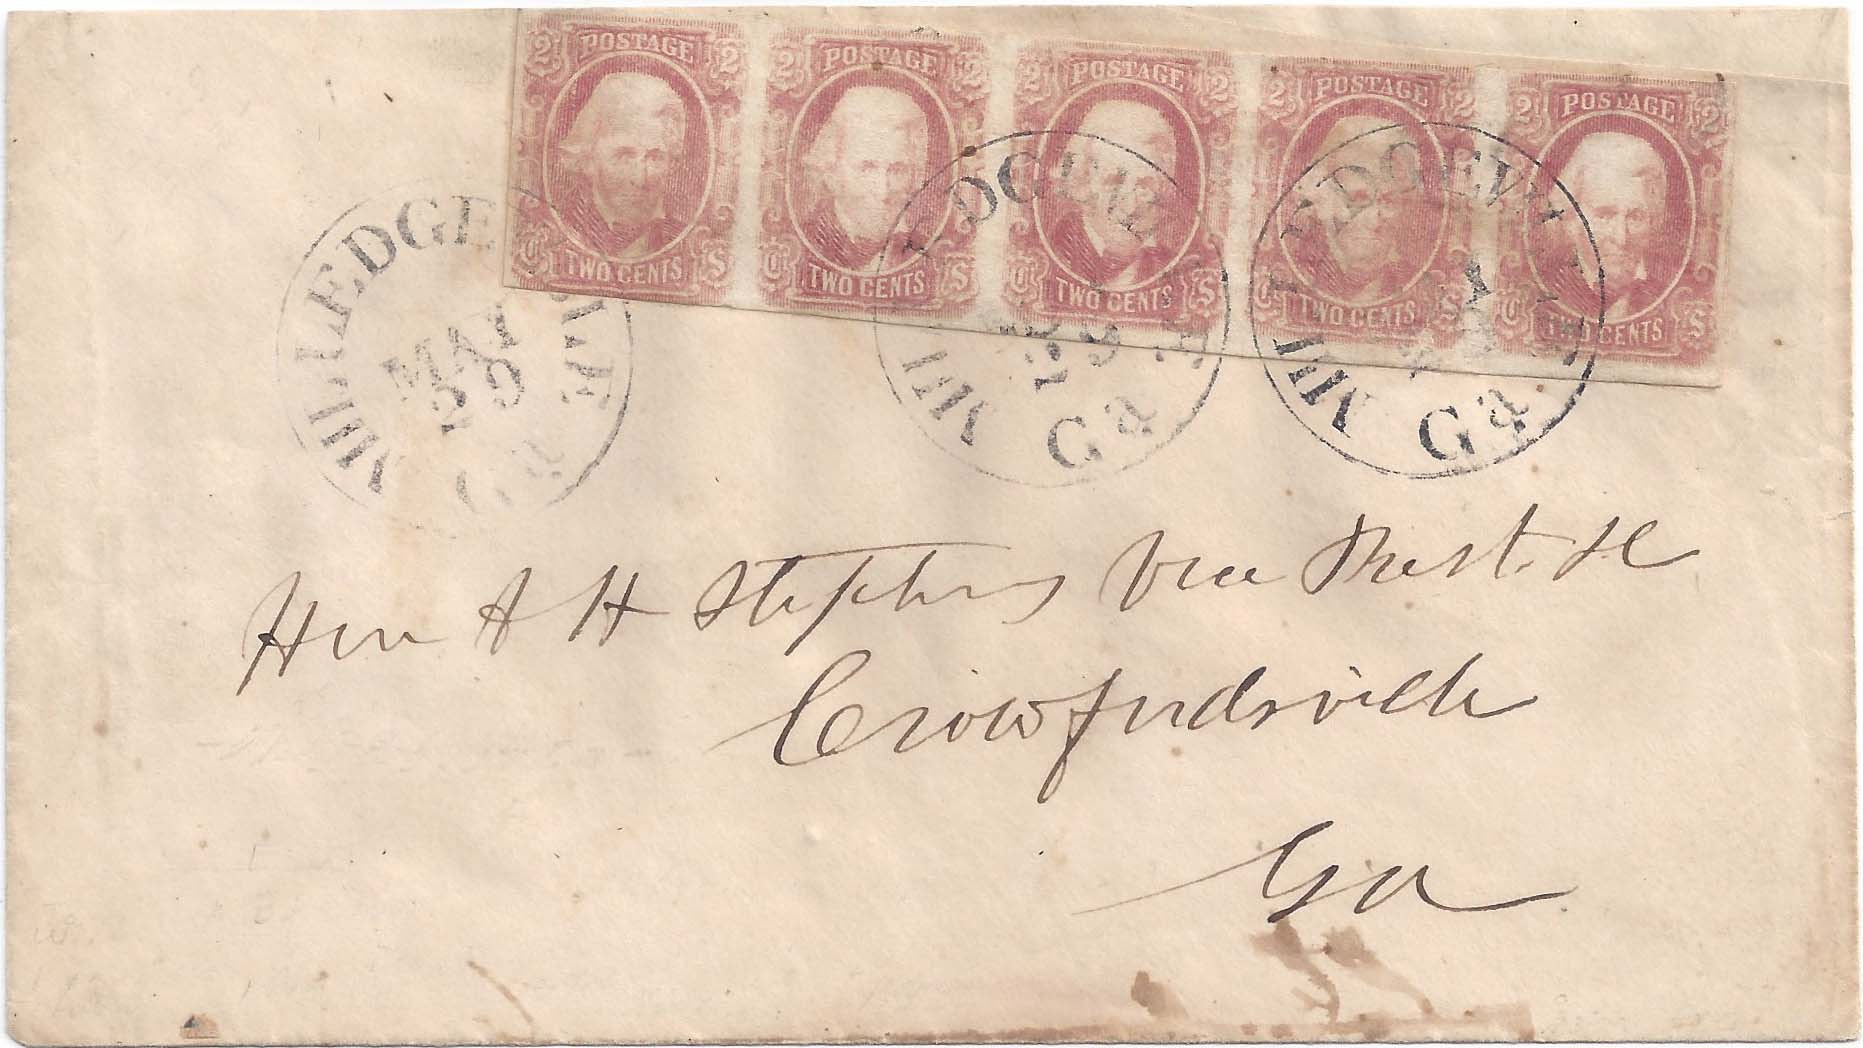 2 POSTAGE 2 2 POSTAGE 2 2 POSTAGE 2 2 POSTAGE 2 2 POSTAGE 2
CTS TWO CENTS CTS TWO CENTS CTS TWO CENTS CTS TWO CENTS CTS TWO CENTS
MILLEDGEVILLE MAY 29 Ga
MILLEDGEVILLE 29 Ga
MILLEDGEVILLE Ga
Hon A H Stephens Vice Prest.
Crowfordsville
Ga